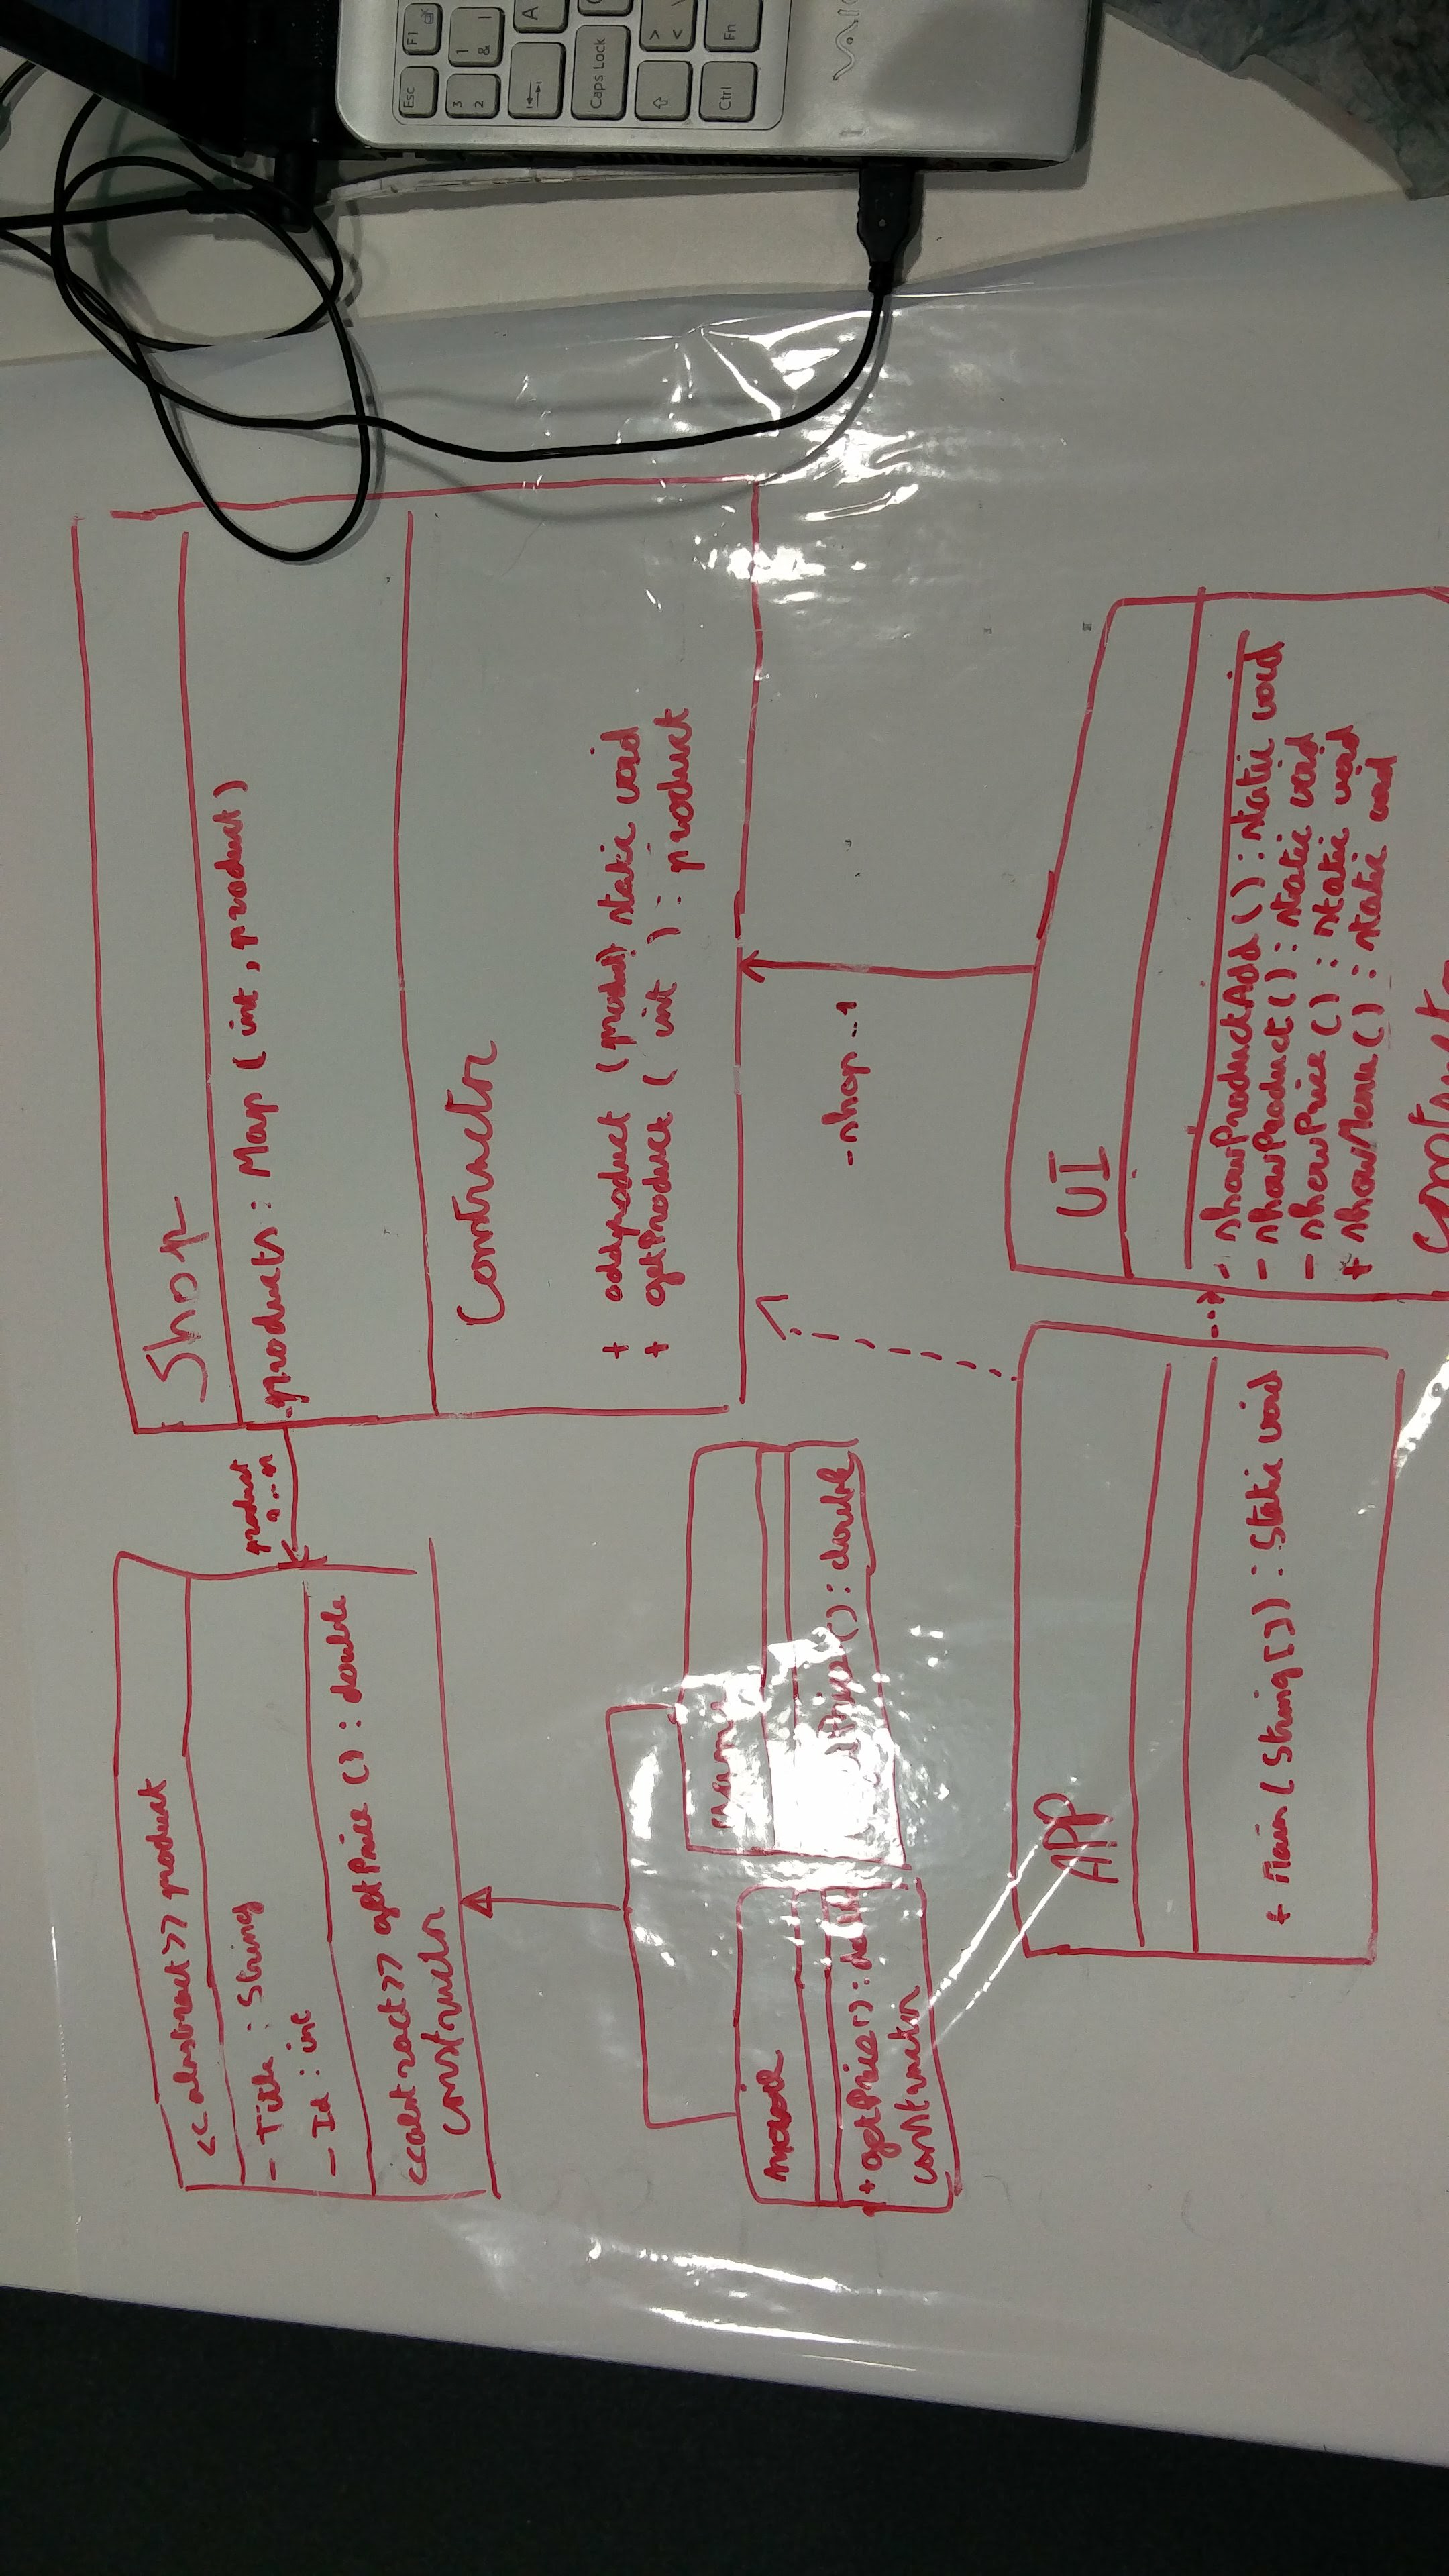 <<abstract>> product
- Title : String
- Id : int
<<abstract>> getPrice () : double
constructor
product
Shop
- products : Map ( int , product )
Constructor
+ addproduct (product) static void
+ getProduct ( int ) : product
movie
+ getPrice () :
constructor
game
Price () : double
- shop ..1
APP
+ Main ( String [] ) : Static void
UI
- showProductAdd () : static void
- showProduct () : static void
- showPrice () : static void
+ showMenu () : static void
Esc
F1
3
2
1
&
A
Caps Lock
>
<
Ctrl
Fn
VAIO